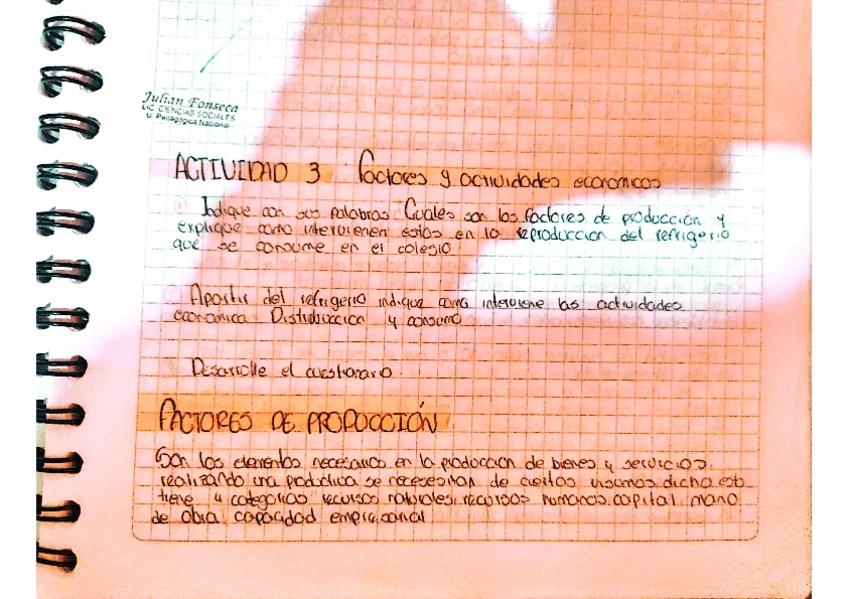 Julian Fonseca
LIC CIENCIAS SOCIALES
U. Pedagogica Nacional
ACTIVIDAD 3 Factores y actividades economicos
Indique con sus palabras Cuales son los factores de producción y
explique como intervienen estos en la reproduccion del refrigerio
que se consume en el colegio
Apartir del refrigerio indique como interviene las actividades
economica Distribuccion y consumo
Desarrolle el cuestionario
FACTORES DE PRODUCCIÓN
Son los elementos necesarios en la produccion de bienes y servicios.
realizando una productiva se necesitan de ciertos insumos dicha esto
tiene 4 categorias recursos naturales, recursos humanos, capital mano
de obra capacidad empresarial